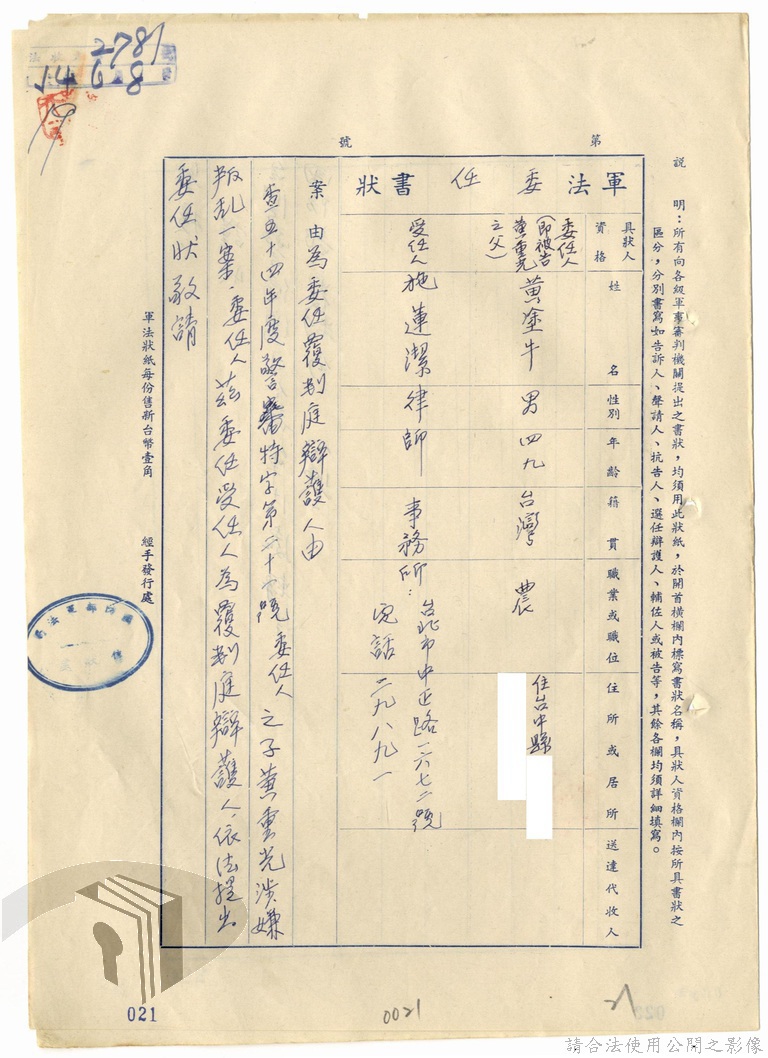 2781
14 6 8
第 號
說 明：所有向各級軍事審判機關提出之書狀，均須用此狀紙，於開首橫欄內標寫書狀名稱，具狀人資格欄內按所具書狀之
區分，分別書寫如告訴人、聲請人、抗告人、選任辯護人、輔佐人或被告等，其餘各欄均須詳細填寫。
軍法委任書狀
具狀人資格 姓名 性別 年齡 籍貫 職業或職位 住所或居所 送達代收人
委任人（即被告黃重光之父） 黃塗牛 男 四九 台灣 農 住台中縣
受任人 施連潔律師 事務所：台北市中正路一六七二號
電話 二九八九一
案 由為委任覆判庭辯護人由
查五十四年度警審特字第二十一號委任人之子黃重光涉嫌
叛乱一案，委任人茲委任受任人為覆判庭辯護人，依法提出
委任狀敬請
軍法狀紙每份售新台幣壹角 經手發行處
021
0021
21
請合法使用公開之影像